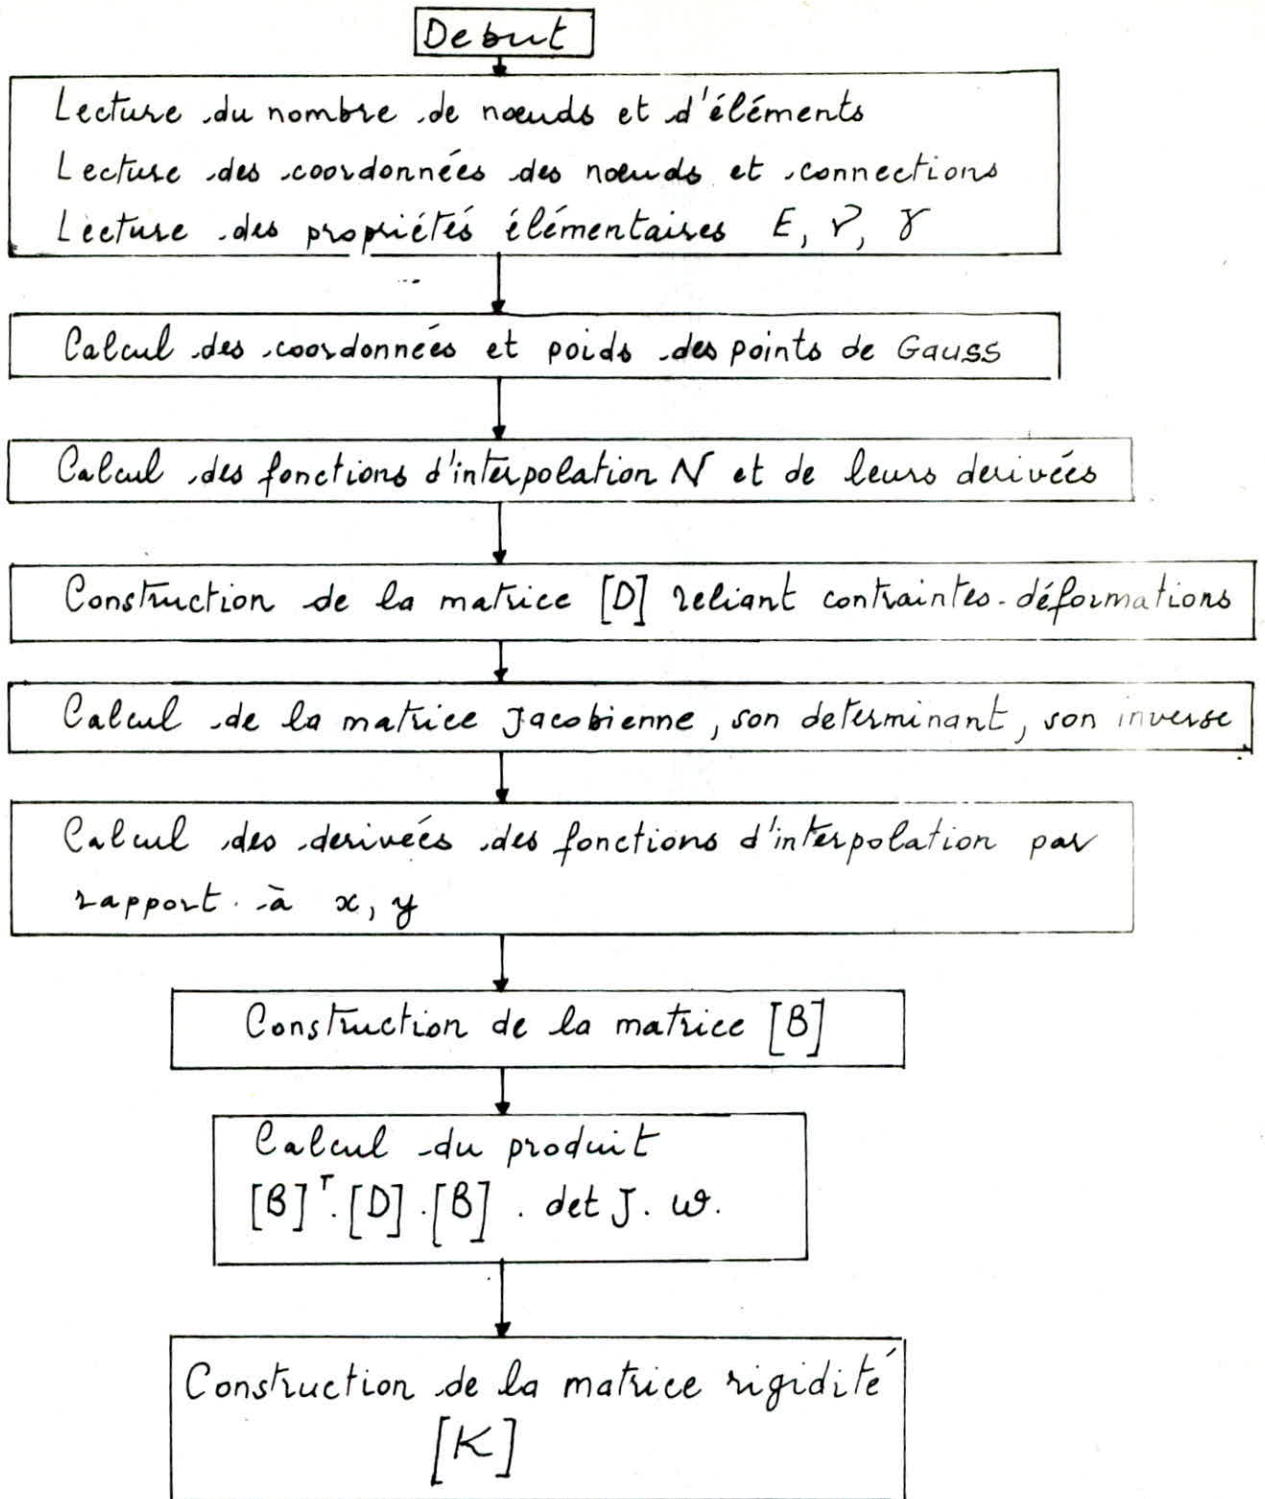 Debut
Lecture du nombre de nœuds et d'éléments
Lecture des coordonnées des nœuds et connections
Lecture des propriétés élémentaires E, ν, γ
Calcul des coordonnées et poids des points de Gauss
Calcul des fonctions d'interpolation N et de leurs derivées
Construction de la matrice [D] reliant contraintes-déformations
Calcul de la matrice Jacobienne, son determinant, son inverse
Calcul des derivées des fonctions d'interpolation par
rapport à x, y
Construction de la matrice [B]
Calcul du produit
[B]ᵀ.[D].[B] . det J. w.
Construction de la matrice rigidité
[K]